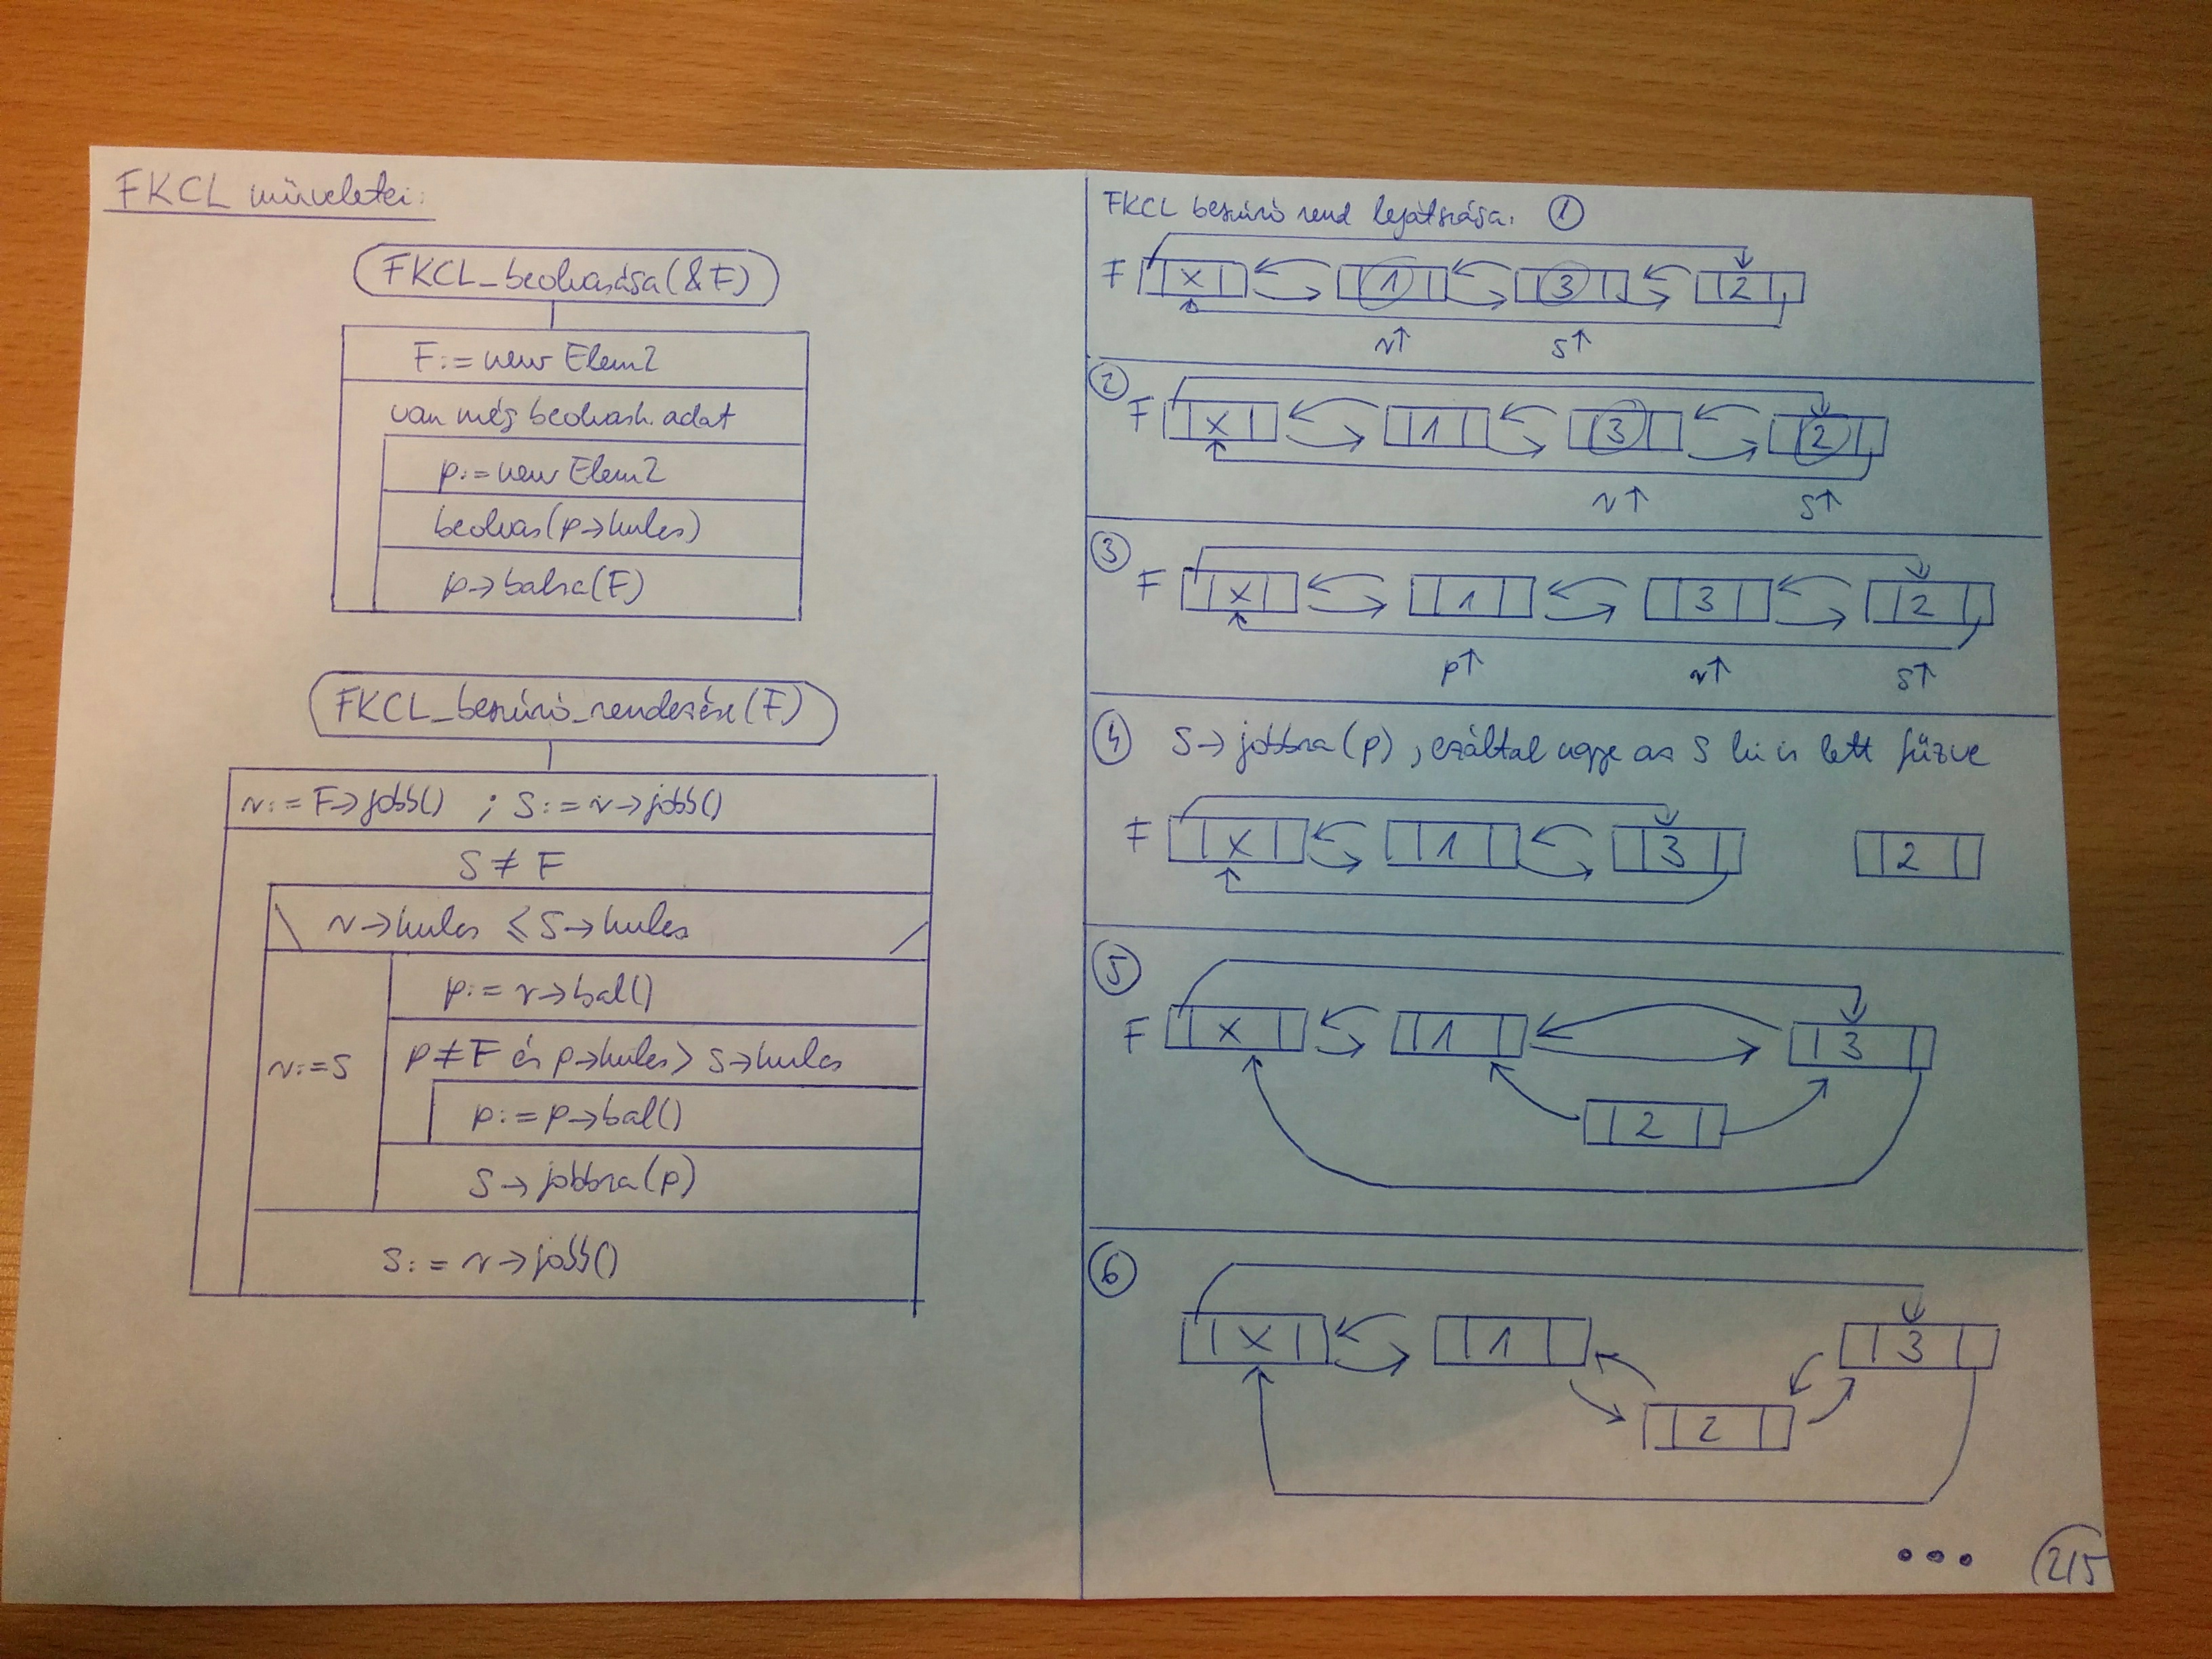 FKCL műveletei:
FKCL_beolvasása(&F)
F:=new Elem2
van még beolvash. adat
p:=new Elem2
beolvas(p→kulcs)
p→balra(F)
FKCL_beszúró_rendezése(F)
r:=F→jobb() ; s:=r→jobb()
s≠F
r→kulcs ≤ s→kulcs
r:=s
p:=r→bal()
p≠F és p→kulcs > s→kulcs
p:=p→bal()
s→jobbra(p)
s:=r→jobb()
FKCL beszúró rend lejátszása: ①
F X 1 3 2
r↑ s↑
②
F X 1 3 2
r↑ s↑
③
F X 1 3 2
p↑ r↑ s↑
④ s→jobbra(p), ezáltal ugye az s ki is lett fűzve
F X 1 3 2
⑤
F X 1 3
2
⑥
X 1 3
2
...
2/5